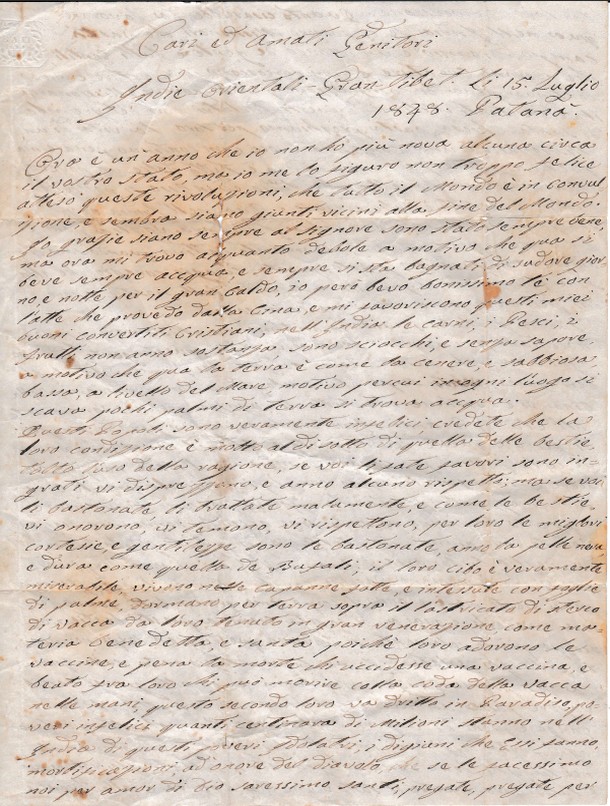 Cari ed Amati Genitori
Indie Orientali Gran Tibet. li 15. Luglio
1848. Patana.
Ora è un' anno che io non ho più nova alcuna circa
il vostro stato, ma io me lo figuro non troppo felice
atteso queste rivoluzioni, che tutto il Mondo è in convul
sione, e sembra siano giunti vicini alla fine del Mondo.
Io grazie siano sempre al Signore sono stato sempre bene,
ma ora mi trovo alquanto debole a motivo che qua si
beve sempre acqua, e sempre si sta bagnati di sudore gior
no, e notte per il gran caldo, io però bevo bonissimo tè con
latte che provedo dalla Cina, e mi favoriscono questi miei
buoni convertiti Cristiani, nell'India le carni, i Pesci, i
frutti non anno sostanza sono sciocchi, e senza sapore,
a motivo che qua la terra è come la cenere, e sabbiosa
bassa, a livello del Mare motivo per cui in ogni luogo si
scava pochi palmi di terra si trova acqua.
Questi Popoli sono veramente infelici credete che la
loro condizione è molto al di sotto di quella delle bestie
tolto l'uso della ragione, se voi li fate favori sono in-
grati vi disprezzano, e anno alcuno rispetto; ma se voi
li bastonate, li trattate malamente, e come le bestie,
vi onorono, vi temono, vi rispettono, per loro le migliori
cortesie, e gentilezze sono le bastonate, anno la pelle nera
e dura come quella de Bufali, il loro cibo è veramente
miserabile, vivono nelle capanne fatte, e intessute con foglie
di palme, dormano per terra sopra il lastricato di sterco
di vacca da loro tenuto in gran venerazione, come ma
teria benedetta, e santa, poichè loro adorono le
vaccine, e pena la morte chi uccidesse una vaccina, e
beato fra loro chi può morire colla coda della vacca
nelle mani, questo secondo loro va dritto in Paradiso, po
veri infelici quanti centinara di Milioni stanno nell'
India di questi poveri Idolatri, i digiuni che Essi fanno,
mortificazioni ad onore del Diavolo, che se le facessimo
noi per amor di Dio saressimo santi, pregate, pregate per